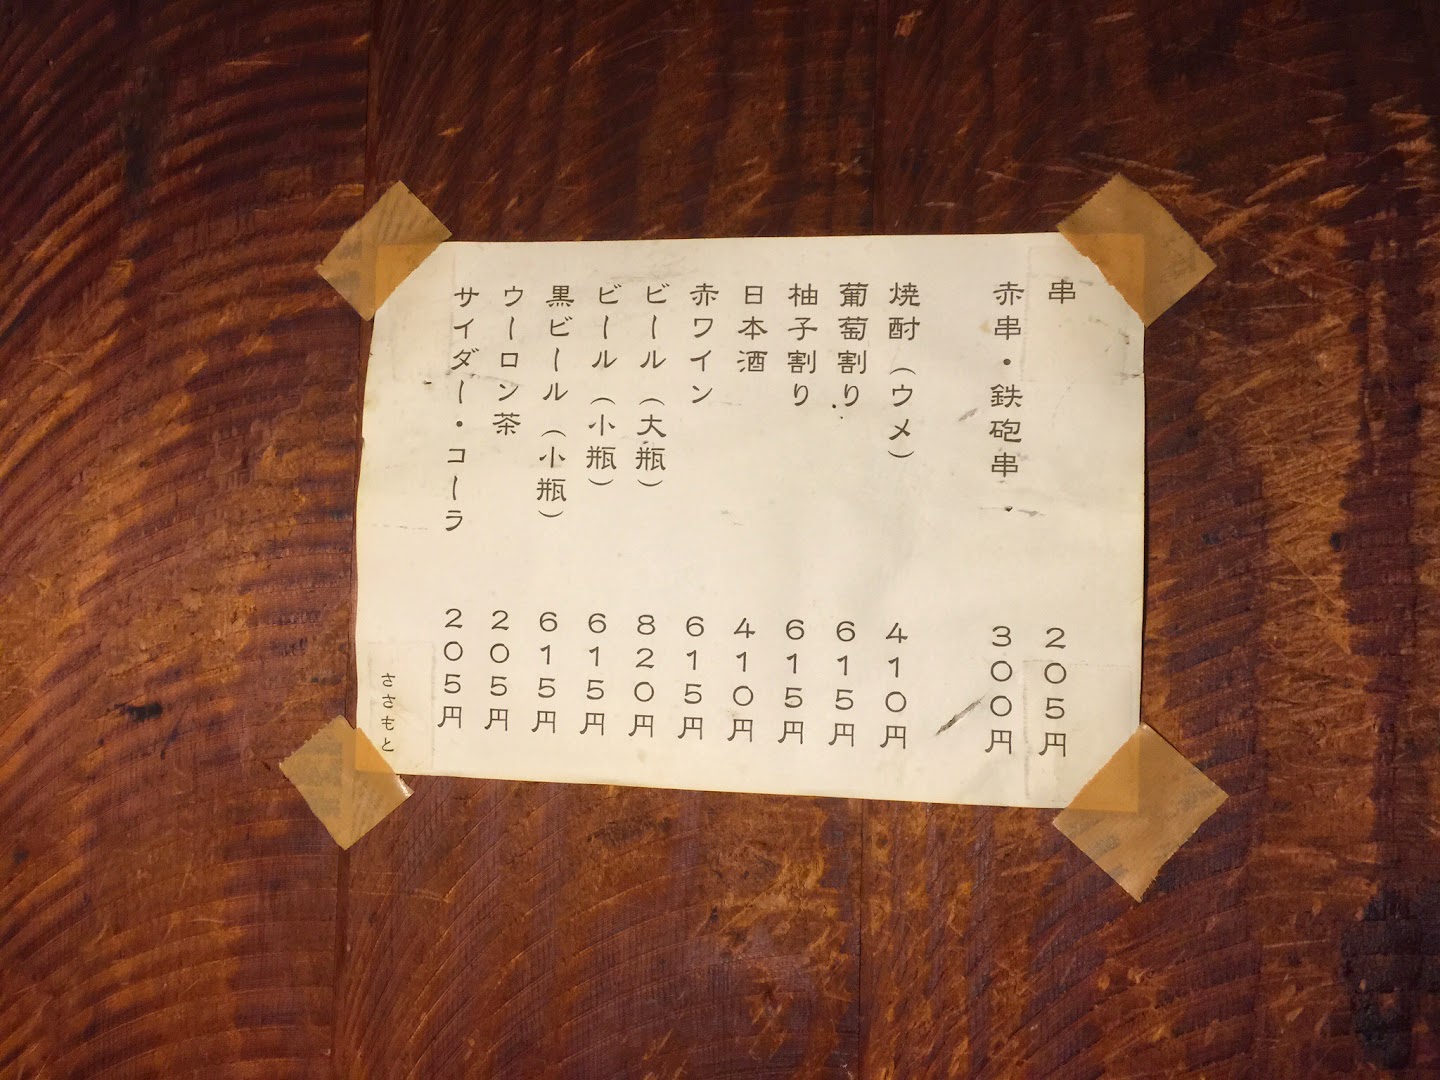 串 205円
赤串・鉄砲串・ 300円
焼酎(ウメ) 410円
葡萄割り 615円
柚子割り 615円
日本酒 410円
赤ワイン 615円
ビール(大瓶) 820円
ビール(小瓶) 615円
黒ビール(小瓶) 615円
ウーロン茶 205円
サイダー・コーラ 205円
ささもと